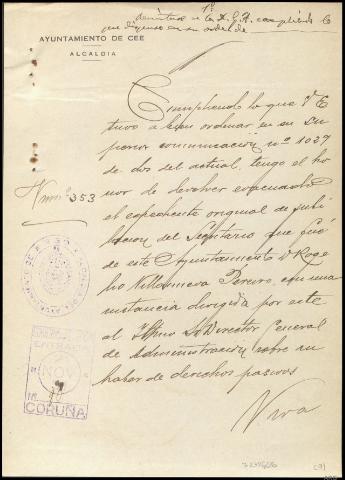 1º
devuélvase a la D.G.A. cumpliendo lo
que dispuso en su orden de
AYUNTAMIENTO DE CEE
ALCALDIA
Cumpliendo lo que V E
tuvo a bien ordenar en su su
perior comunicación nº 1027
de dos del actual, tengo el ho
nor de devolver evacuado
Numº 353
el expediente original de jubi
lacion del Secretario que fué
de este Ayuntamiento D. Roge
lio Villanueva Pereiro, con una
instancia dirigida por este
al Iltmo Sr Director General
de Administración sobre su
haber de derechos pasivos
Viva
ENTRADA
NOV
CORUÑA